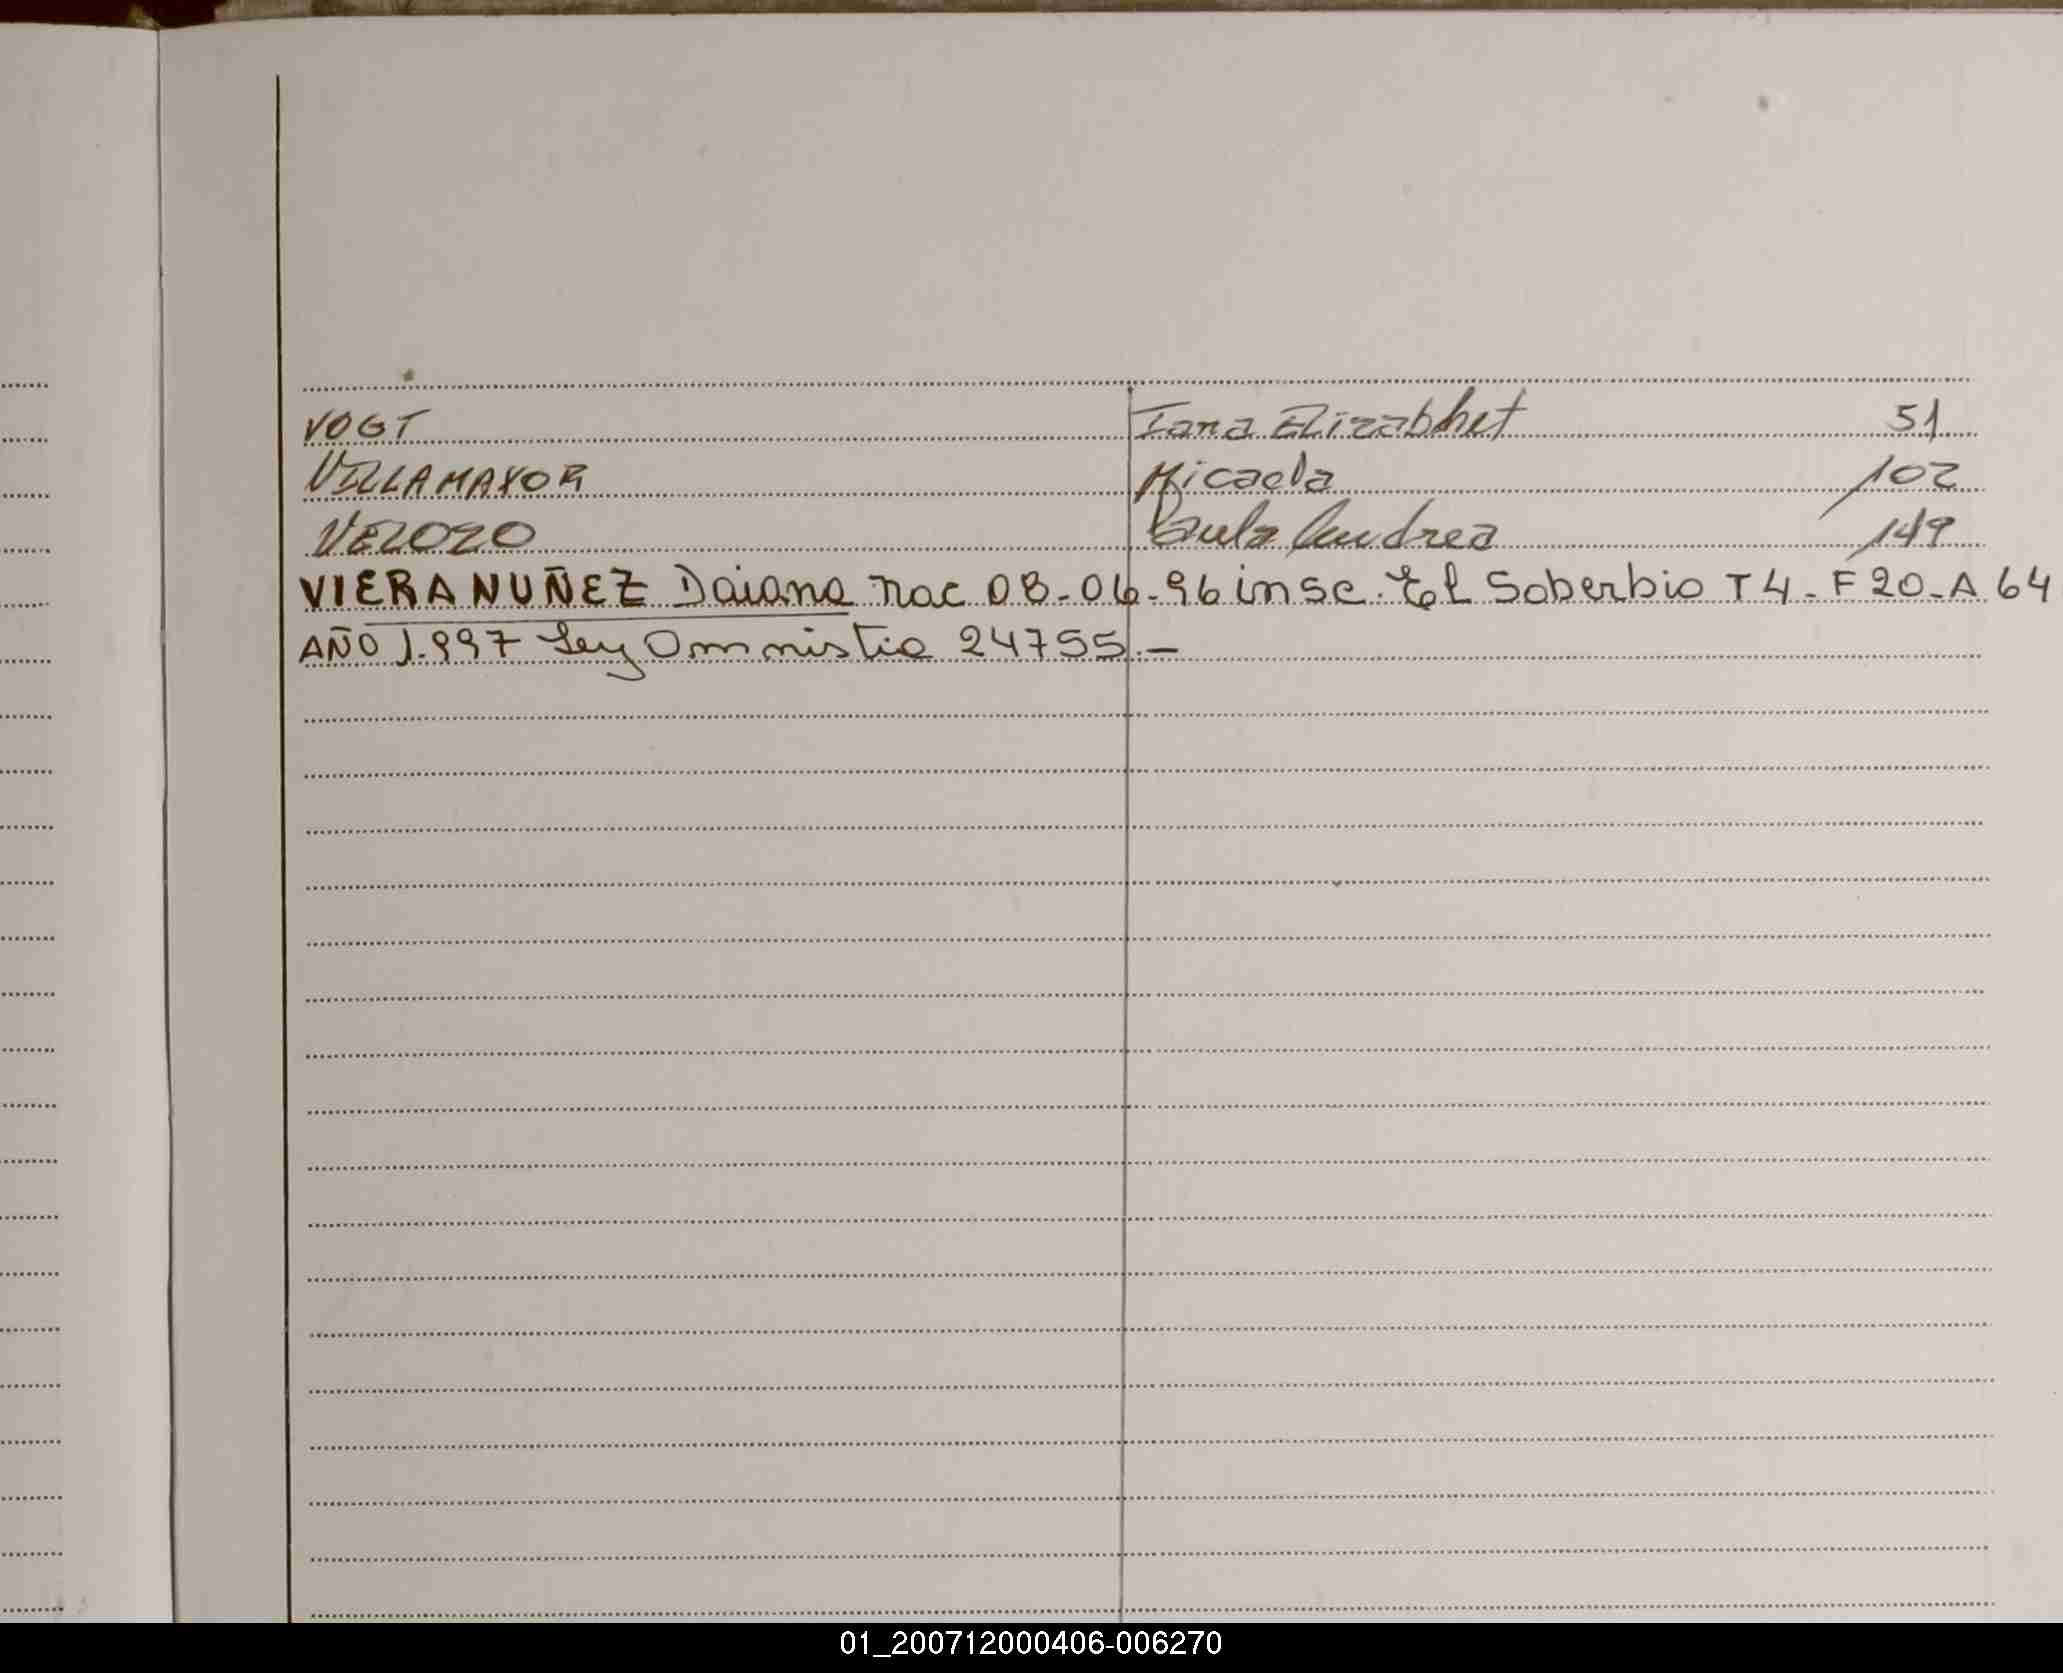 VOGT Iana Elizabhet 51
VILLAMAYOR Micaela 102
VEROZO Paula Andrea 149
VIERA NUÑEZ Daiana nac 08-06-96 insc. El Soberbio T4-F20-A 64
AÑO 1.997 Ley Omnistia 24755.-
01_200712000406-006270